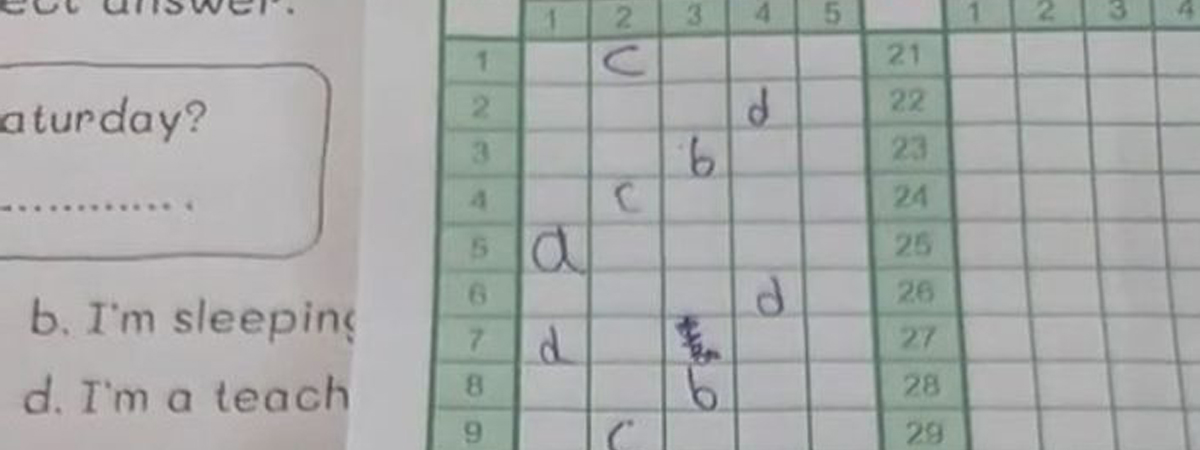 ect answer.
aturday?
b. I'm sleeping
d. I'm a teach
1 2 3 4 5 1 2 3 4
1 c 21
2 d 22
3 b 23
4 c 24
5 a 25
6 d 26
7 d 27
8 b 28
9 c 29